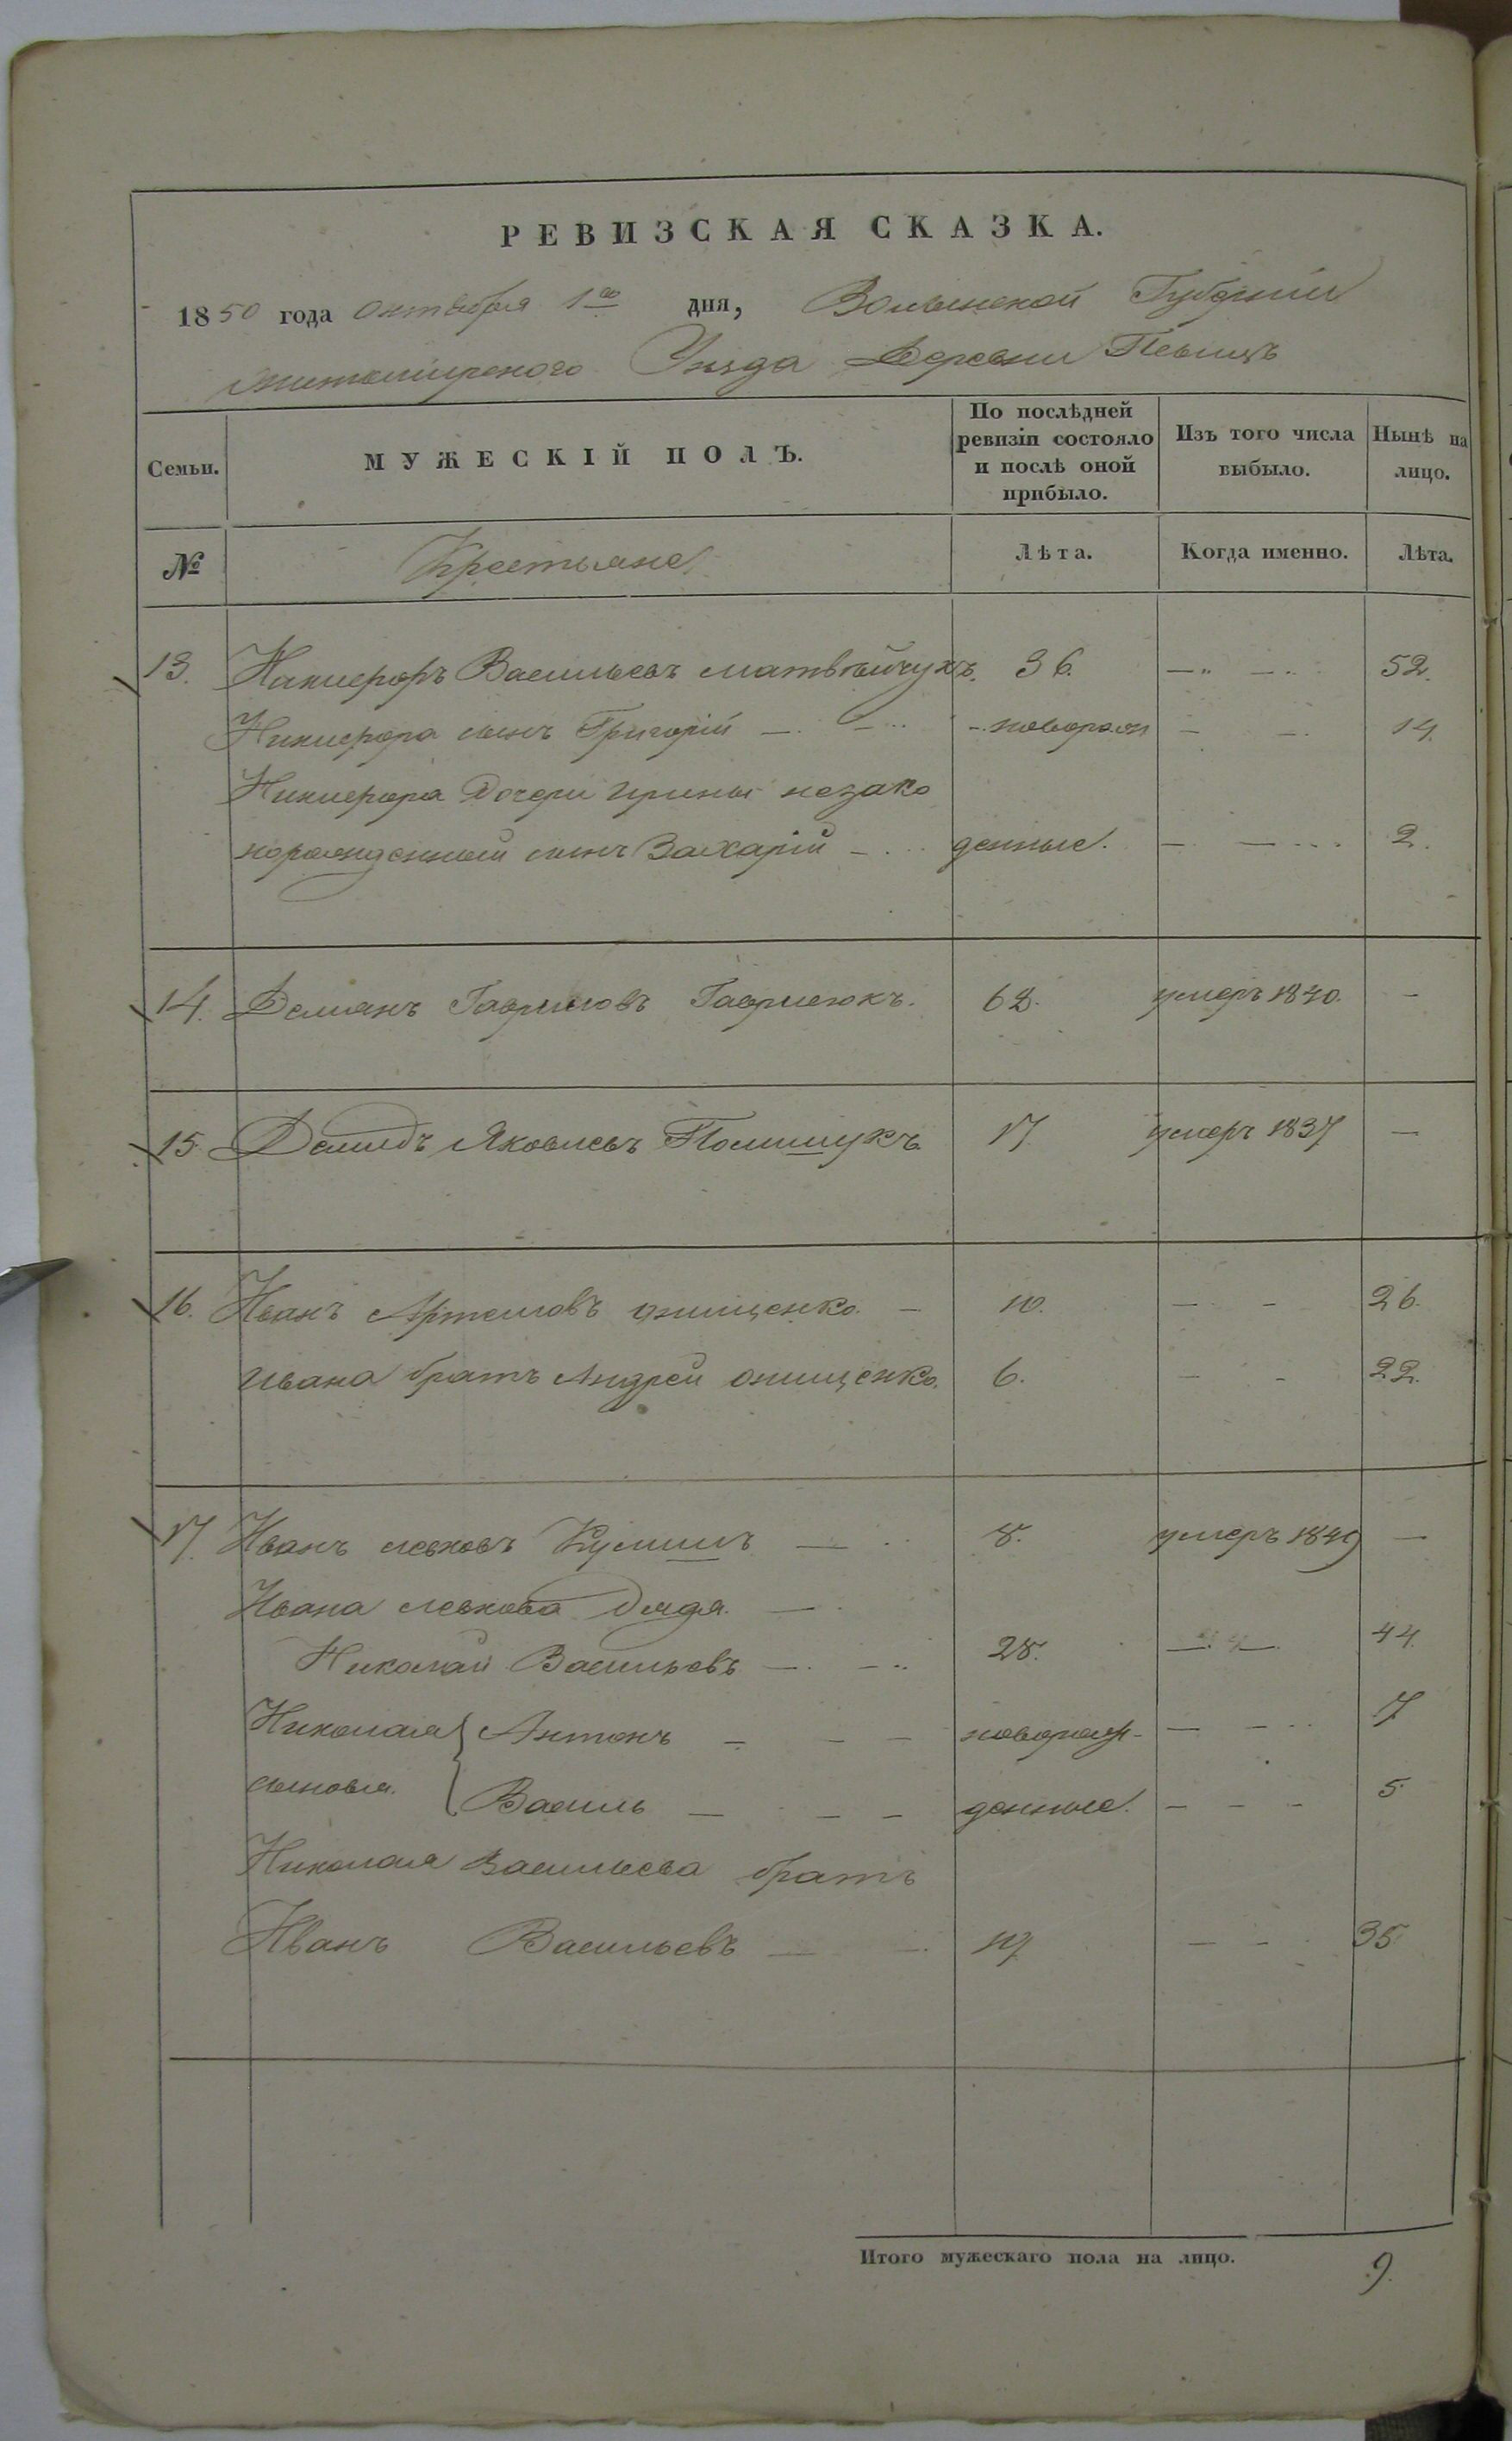 РЕВИЗСКАЯ СКАЗКА.
1850 года октября 1го дня, Волынской Губернiи
Житомирского Уезда Деревни
Семьи. МУЖЕСКIЙ ПОЛЪ. По послѣдней ревизiи состояло и послѣ оной прибыло. Изъ того числа выбыло. Нынѣ на лицо.
№ Крестьяне Лѣта. Когда именно. Лѣта.
13. Никифоръ Васильевъ Матвѣйчукъ. 36. — — 52.
Никифора сынъ Григорiй — — новорож — — 14.
Никифора дочери Ирины незако
норожденный сынъ Захарiй — денные. — — 2.
14. Демянъ Гавриловъ Гаврилюкъ. 62. умеръ 1840. —
15. Демидъ Яковлевъ Полишукъ 17 умеръ 1837 —
16. Иванъ Артемовъ Онищенко. — 10. — — 26.
Ивана братъ Андрей Онищенко. 6. — — 22.
17. Иванъ Левковъ Кулишъ — 8. умеръ 1849 —
Ивана Левкова дядя. —
Николай Васильевъ — — 28. — — 44.
Николая { Антонъ — — — новорож- — — 7
сыновья. { Василь — — — денные. — — — 5.
Николая Васильева братъ
Иванъ Васильевъ — 19 — — 35.
Итого мужескаго пола на лицо. 9.